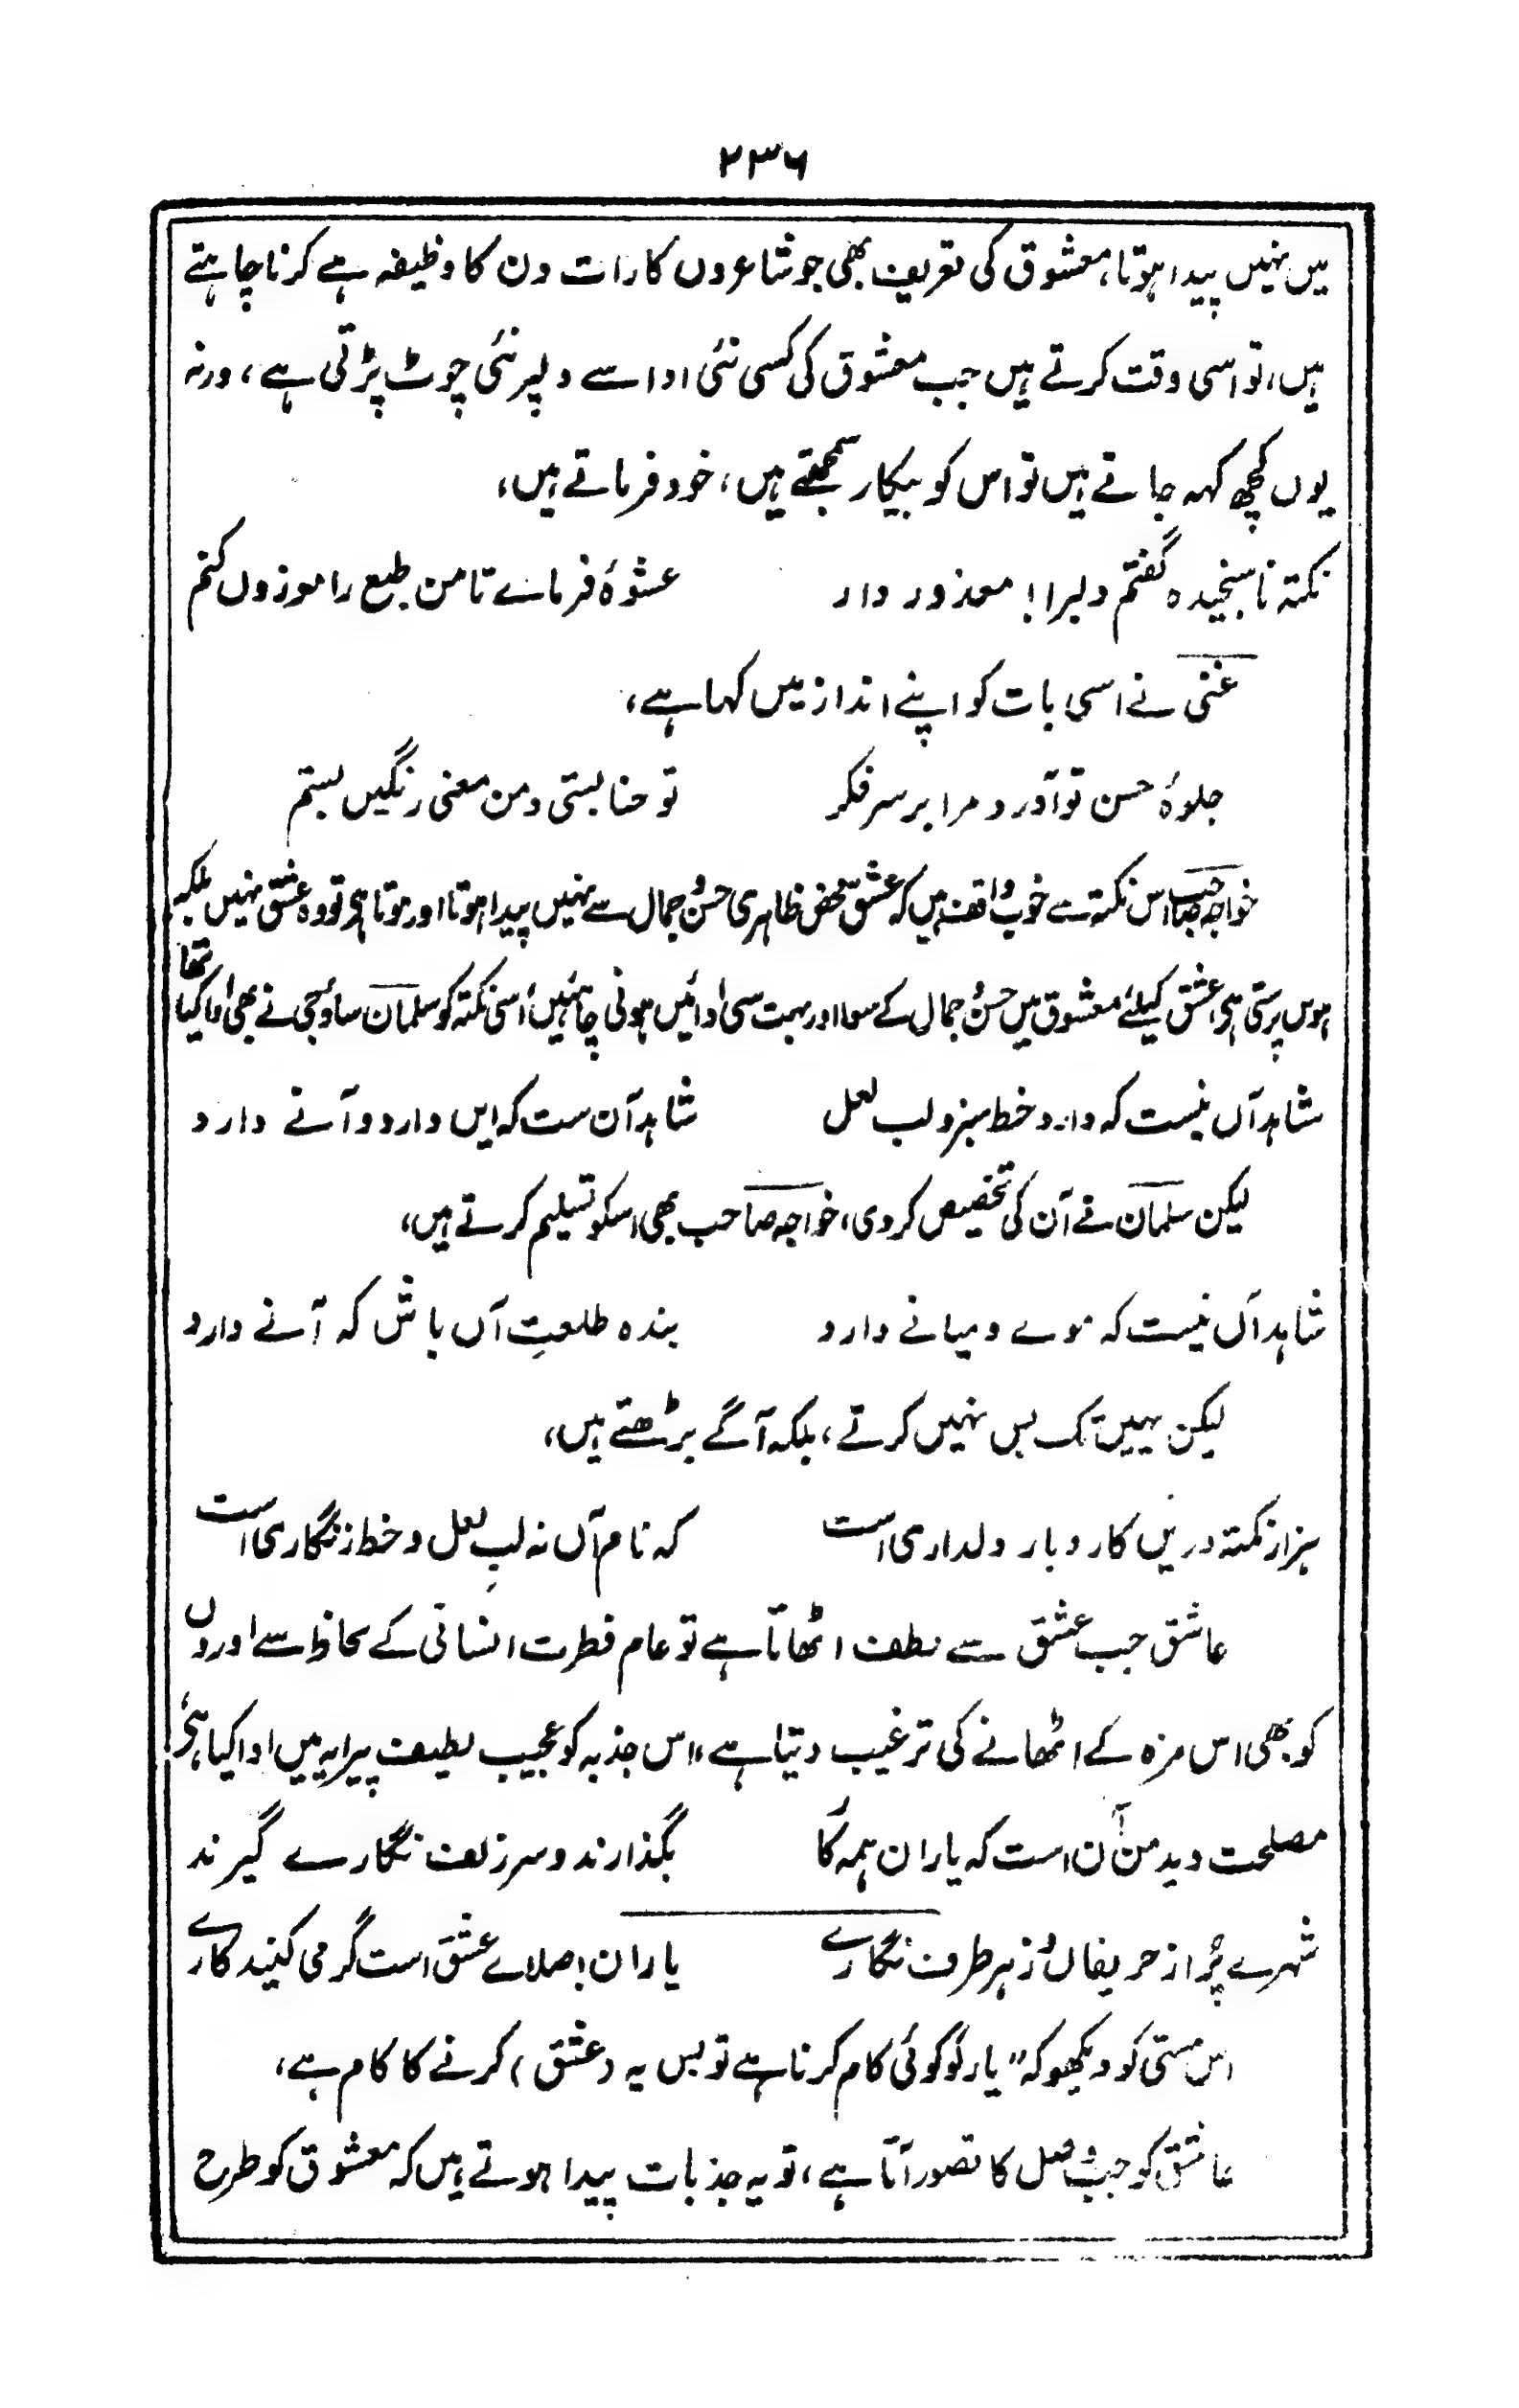 ۲۳۶
میں نہیں پیدا ہوتا، معشوق کی تعریف بھی جو شاعروں کا رات دن کا وظیفہ ہے کرنا چاہتے
ہیں، تو اسی وقت کرتے ہیں جب معشوق کی کسی نئی ادا سے دلپر نئی چوٹ پڑتی ہے، ورنہ
یوں کچھ کہہ جاتے ہیں تو اس کو بیکار سمجھتے ہیں، خود فرماتے ہیں،
نکتہ ناسنجیدہ گفتم دلبرا! معذور دار عشوۂ فرماے تا من طبع را موزوں کنم
غنی نے اسی بات کو اپنے انداز میں کہا ہے،
جلوۂ حسن تو آورد مرا بر سر فکر تو حنا بستی و من معنی رنگیں بستم
خواجہ صاحب اس نکتہ سے خوب واقف ہیں کہ عشق محض ظاہری حسن و جمال سے نہیں پیدا ہوتا اور ہوتا ہی تو وہ عشق نہیں بلکہ
ہوس پرستی ہی، عشق کیلئے معشوق میں حسن و جمال کے سوا اور بہت سی ادائیں ہونی چاہئیں، اسی نکتہ کو سلمان ساوجی نے بھی ادا کیا تھا
شاہد آں نیست کہ دارد خط سبز و لب لعل شاہد آن ست کہ ایں دارد و آنے دارد
لیکن سلمان نے آن کی تخصیص کر دی، خواجہ صاحب بھی اسکو تسلیم کرتے ہیں،
شاہد آں نیست کہ موے و میانے دارد بندہ طلعتِ آں باش کہ آنے دارد
لیکن یہیں تک بس نہیں کرتے، بلکہ آگے بڑھتے ہیں،
ہزار نکتہ دریں کاروبار دلداری است کہ نام آں نہ لبِ لعل و خط زنگاری است
عاشق جب عشق سے لطف اٹھاتا ہے تو عام فطرت انسانی کے لحاظ سے اوروں
کو بھی اس مزہ کے اٹھانے کی ترغیب دیتا ہے، اس جذبہ کو عجیب لطیف پیرایہ میں ادا کیا ہی،
مصلحت دید من آن است کہ یاران ہمہ کار بگذارند و سر زلف نگارے گیرند
شہرے پُر از حریفاں و ز ہر طرف نگارے یاران! صلاے عشق است گر می کنید کارے
اس مستی کو دیکھو کہ "یارو کو کوئی کام کرنا ہے تو بس یہ (عشق) کرنے کا کام ہے،
عاشق کو جب وصل کا تصور آتا ہے، تو یہ جذبات پیدا ہوتے ہیں کہ معشوق کو طرح